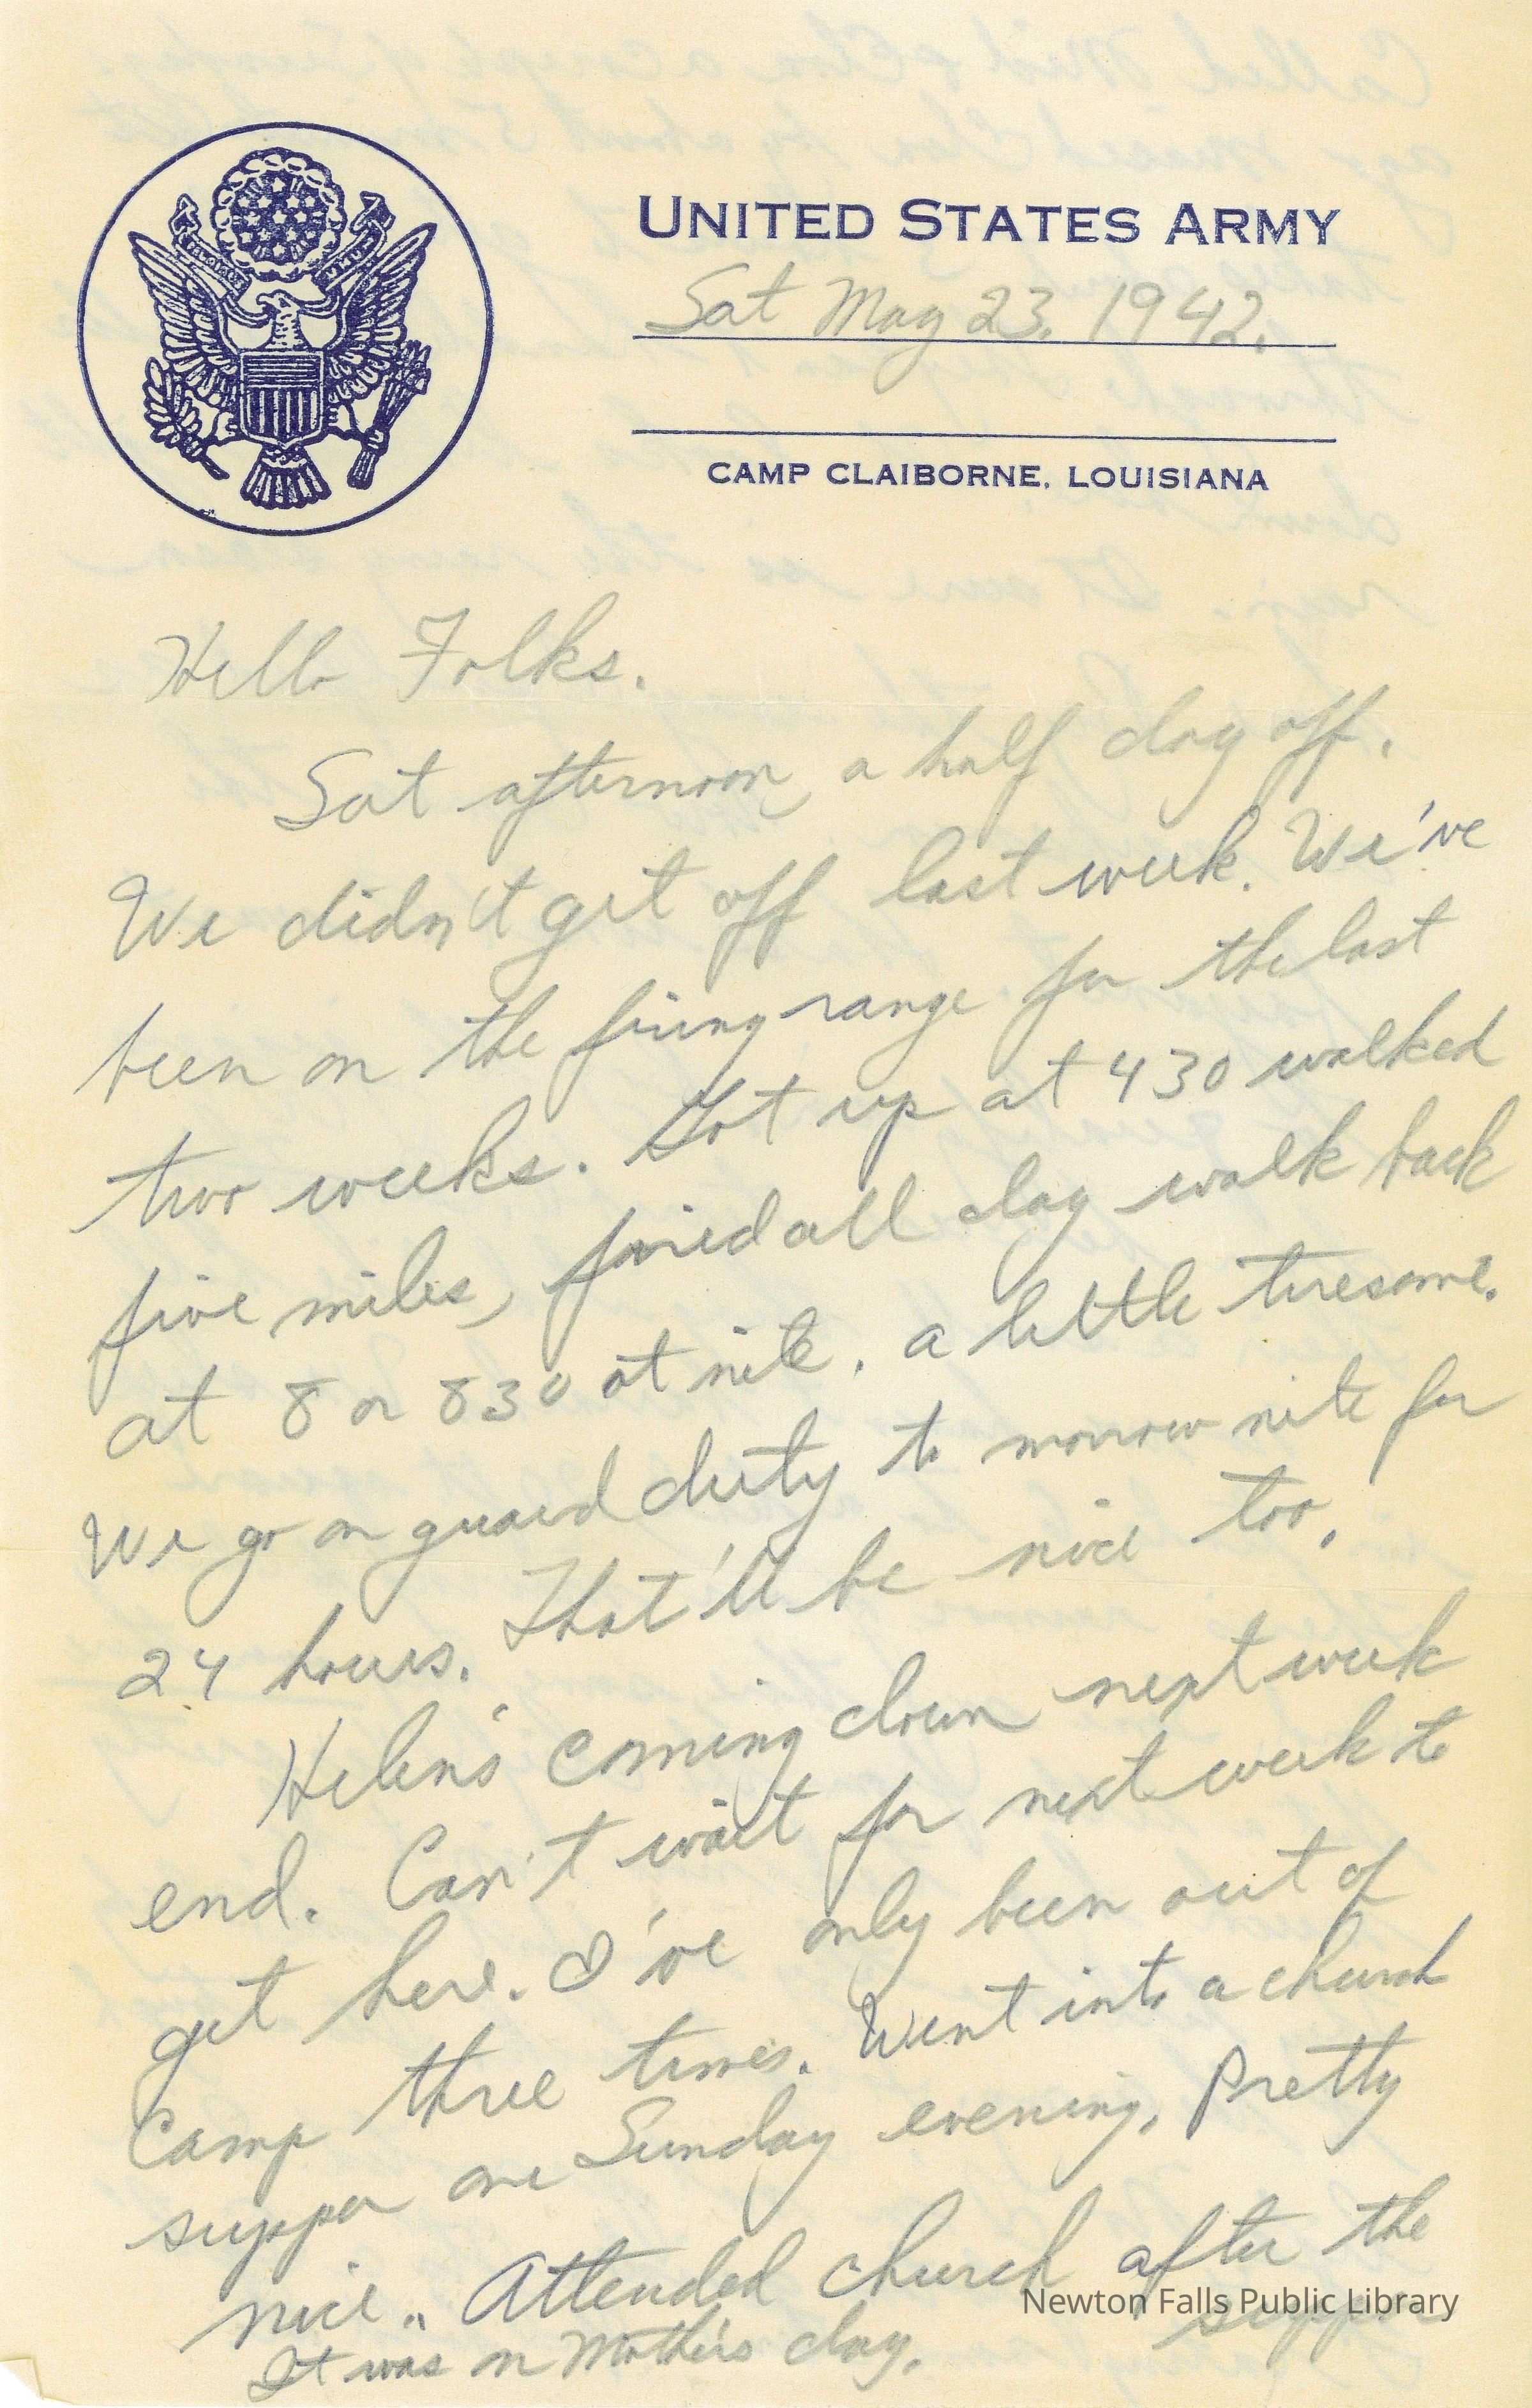 UNITED STATES ARMY
Sat May 23. 1942.
CAMP CLAIBORNE, LOUISIANA
Hello Folks.
Sat afternoon, a half day off.
We didn't get off last week. We've
been on the firing range for the last
two weeks. Got up at 430 walked
five miles, fired all day walk back
at 8 or 830 at nite. a little tiresome.
We go on guard duty to morrow nite for
24 hours. That'll be nice too.
Helen's coming down next week
end. Can't wait for next week to
get here. I've only been out of
Camp three times. Went into a church
supper one Sunday evening. Pretty
nice. Attended church after the
supper
It was on Mother's day.
Newton Falls Public Library